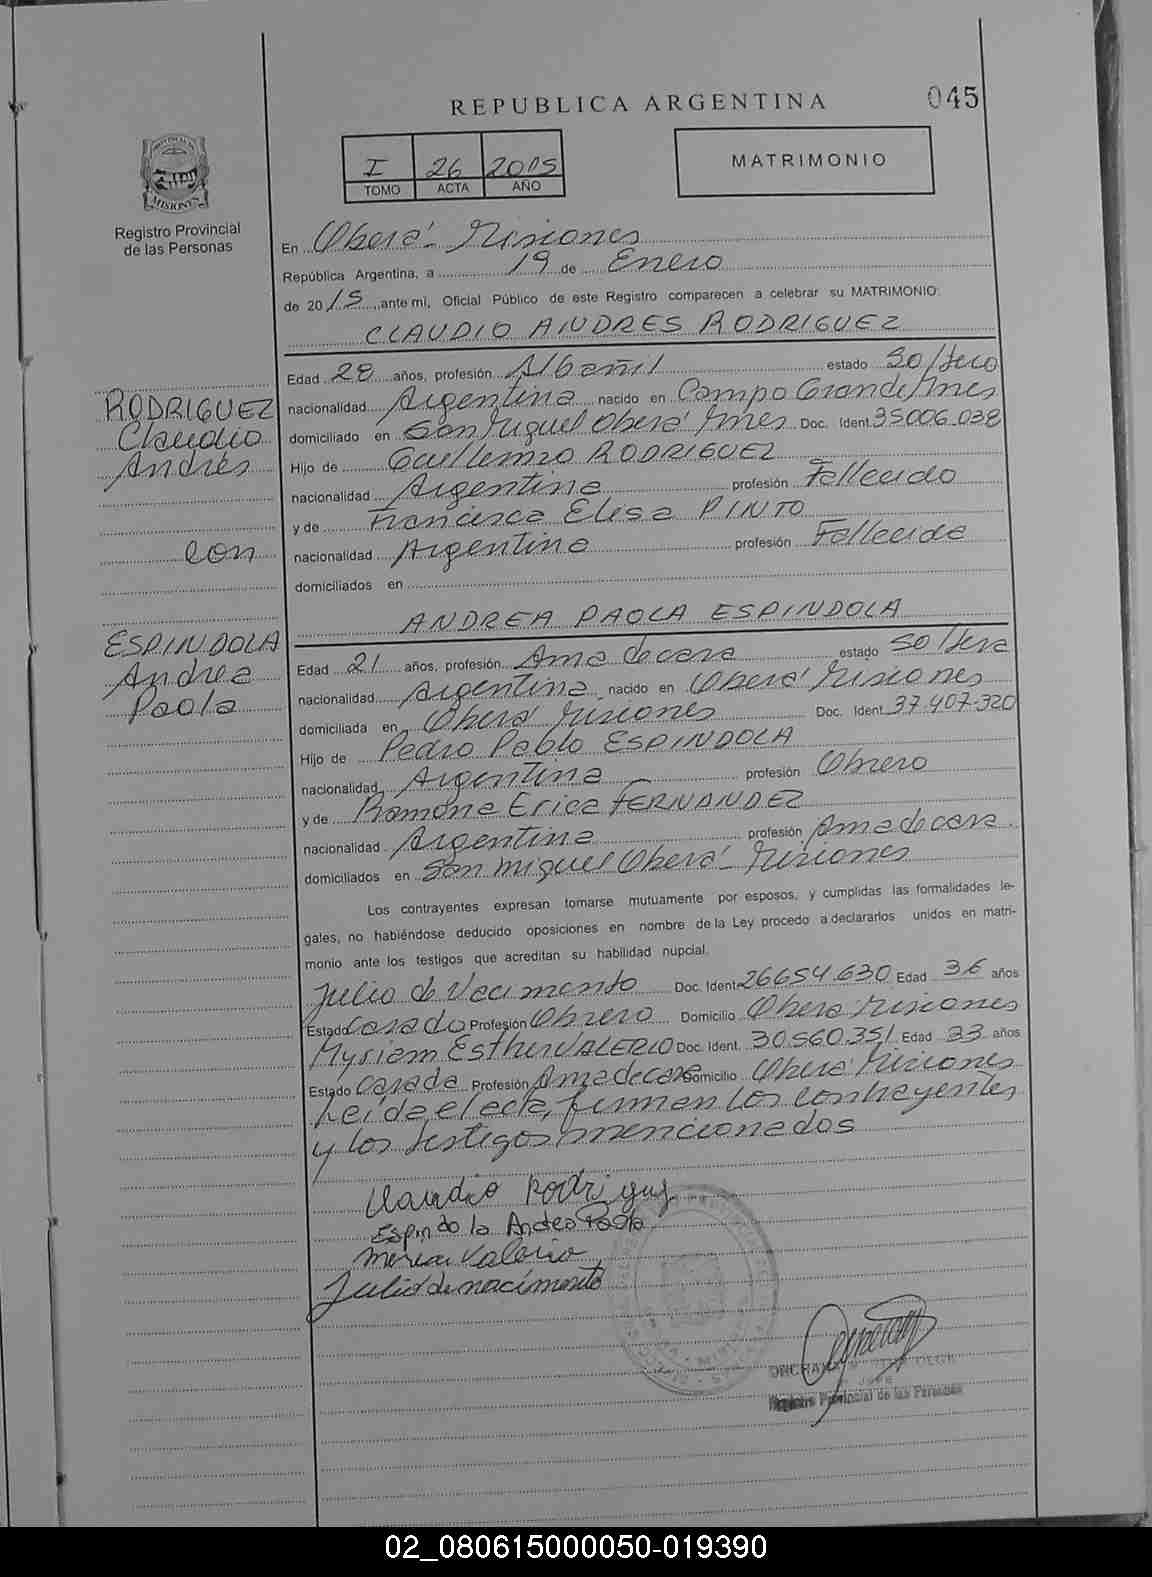 REPUBLICA ARGENTINA
045
I 26 2015
TOMO ACTA AÑO
MATRIMONIO
PROVINCIA DE
MISIONES
Registro Provincial
de las Personas
En Oberá - Misiones
República Argentina, a 19 de Enero
de 2015, ante mi, Oficial Público de este Registro comparecen a celebrar su MATRIMONIO:
CLAUDIO ANDRES RODRIGUEZ
RODRIGUEZ
Claudio
Andrés
con
ESPINDOLA
Andrea
Paola
Edad 28 años, profesión Albañil estado Soltero
nacionalidad Argentina nacido en Campo Grande Mnes
domiciliado en San Miguel Oberá Mnes Doc. Ident. 35006.038
Hijo de Guillermo RODRIGUEZ
nacionalidad Argentina profesión Fallecido
y de Francisca Elisa PINTO
nacionalidad Argentina profesión Fallecida
domiciliados en
ANDREA PAOLA ESPINDOLA
Edad 21 años, profesión Ama de casa estado Soltera
nacionalidad Argentina nacido en Oberá Misiones
domiciliada en Oberá Misiones Doc. Ident. 37.407.320
Hijo de Pedro Pablo ESPINDOLA
nacionalidad Argentina profesión Obrero
y de Ramona Erica FERNANDEZ
nacionalidad Argentina profesión Ama de casa.
domiciliados en San Miguel Oberá - Misiones
Los contrayentes expresan tomarse mutuamente por esposos, y cumplidas las formalidades le-
gales, no habiéndose deducido oposiciones en nombre de la Ley procedo a declararlos unidos en matri-
monio ante los testigos que acreditan su habilidad nupcial.
Julio de Nacimento Doc. Ident. 26654.630 Edad 36 años
Estado Casado Profesión Obrero Domicilio Oberá Misiones
Myriam Esther VALERIO Doc. Ident. 30.560.351 Edad 33 años
Estado Casada Profesión Ama de casa Domicilio Oberá Misiones
Leída el acta, firman los contrayentes
y los testigos mencionados
Claudio Rodriguez
Espindola Andrea Paola
Valerio
Julio de nacimento
Registro Provincial de las Personas
02_080615000050-019390